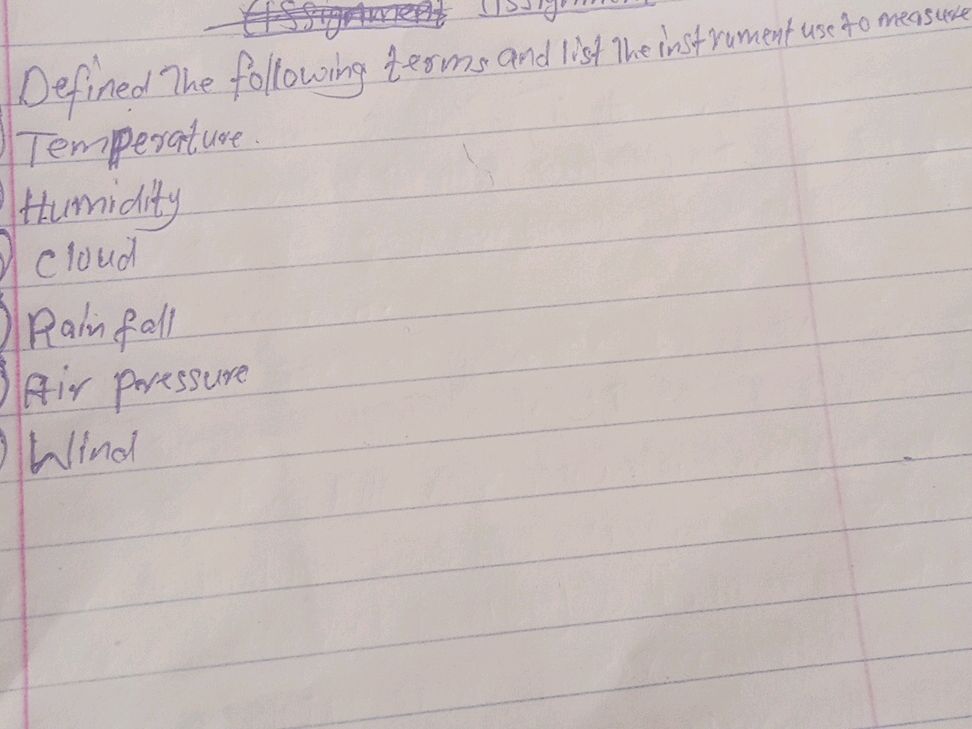 Assignment Assignment
Defined The following terms and list The instrument use to measure
Temperature.
Humidity
Cloud
Rainfall
Air pressure
Wind